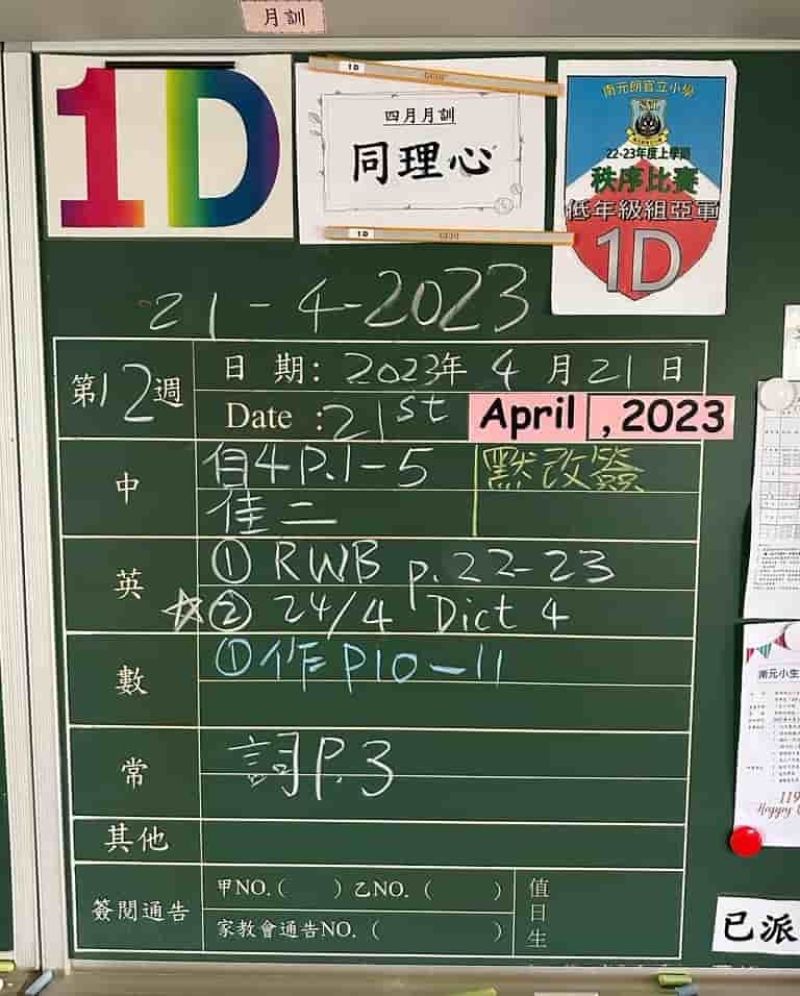 月訓
1D
1D
四月月訓
同理心
1D
南元朗官立小學
22-23年度上學期
秩序比賽
低年級組亞軍
1D
21-4-2023
第12週
日期：2023年4月21日
Date：21st April, 2023
中
自4 P.1-5
默改簽
佳二
英
① RWB p.22-23
☆② 24/4 Dict 4
數
① 作P10-11
常
詞P.3
其他
簽閱通告
甲NO.（ ）乙NO.（ ）
家教會通告NO.（ ）
值日生
南元小生
119
Happy
已派